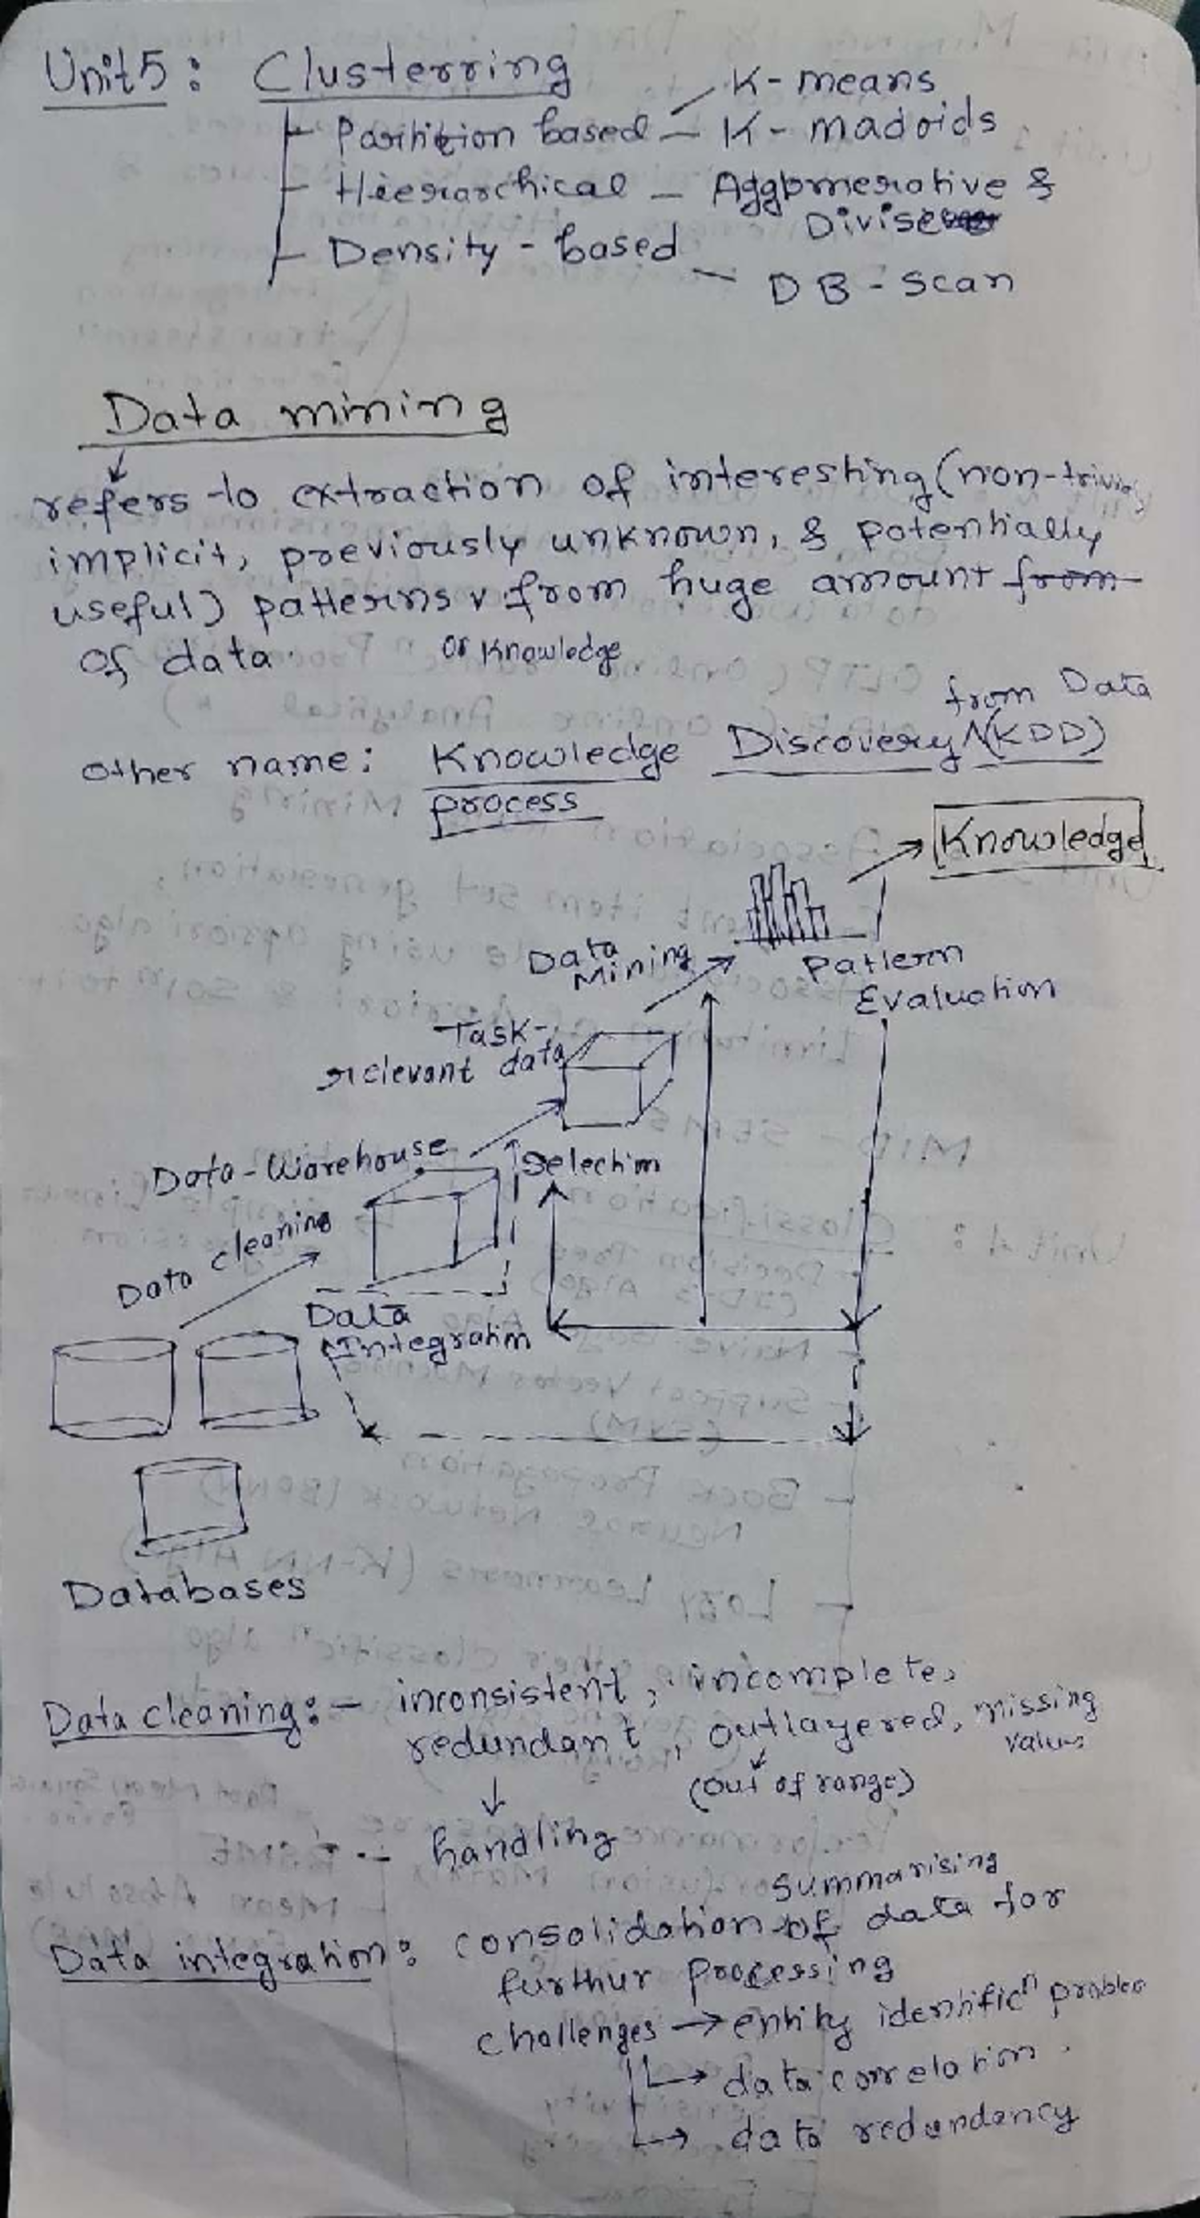 Unit 5: Clusterring
Partition based - K-means
- K-madoids
Hierarchical - Agglomerative &
Divisive
Density-based - DB-Scan
Data mining
refers to extraction of interesting (non-trivial,
implicit, previously unknown, & potentially
useful) patterns v from huge amount from
of data. or Knowledge
from Data
Other name: Knowledge Discovery ^ (KDD)
process
Knowledge
Data
Mining
Pattern
Evaluation
Task-
relevant data
Data-Warehouse
Selection
Data cleaning
Data
Integration
Databases
Data cleaning:- inconsistent, incomplete,
redundant, outlayered, missing
values
(out of range)
handling
summarising
Data integration: consolidation of data for
furthur processing
challenges → entity identificⁿ problem
→ data correlation.
→ data redundancy